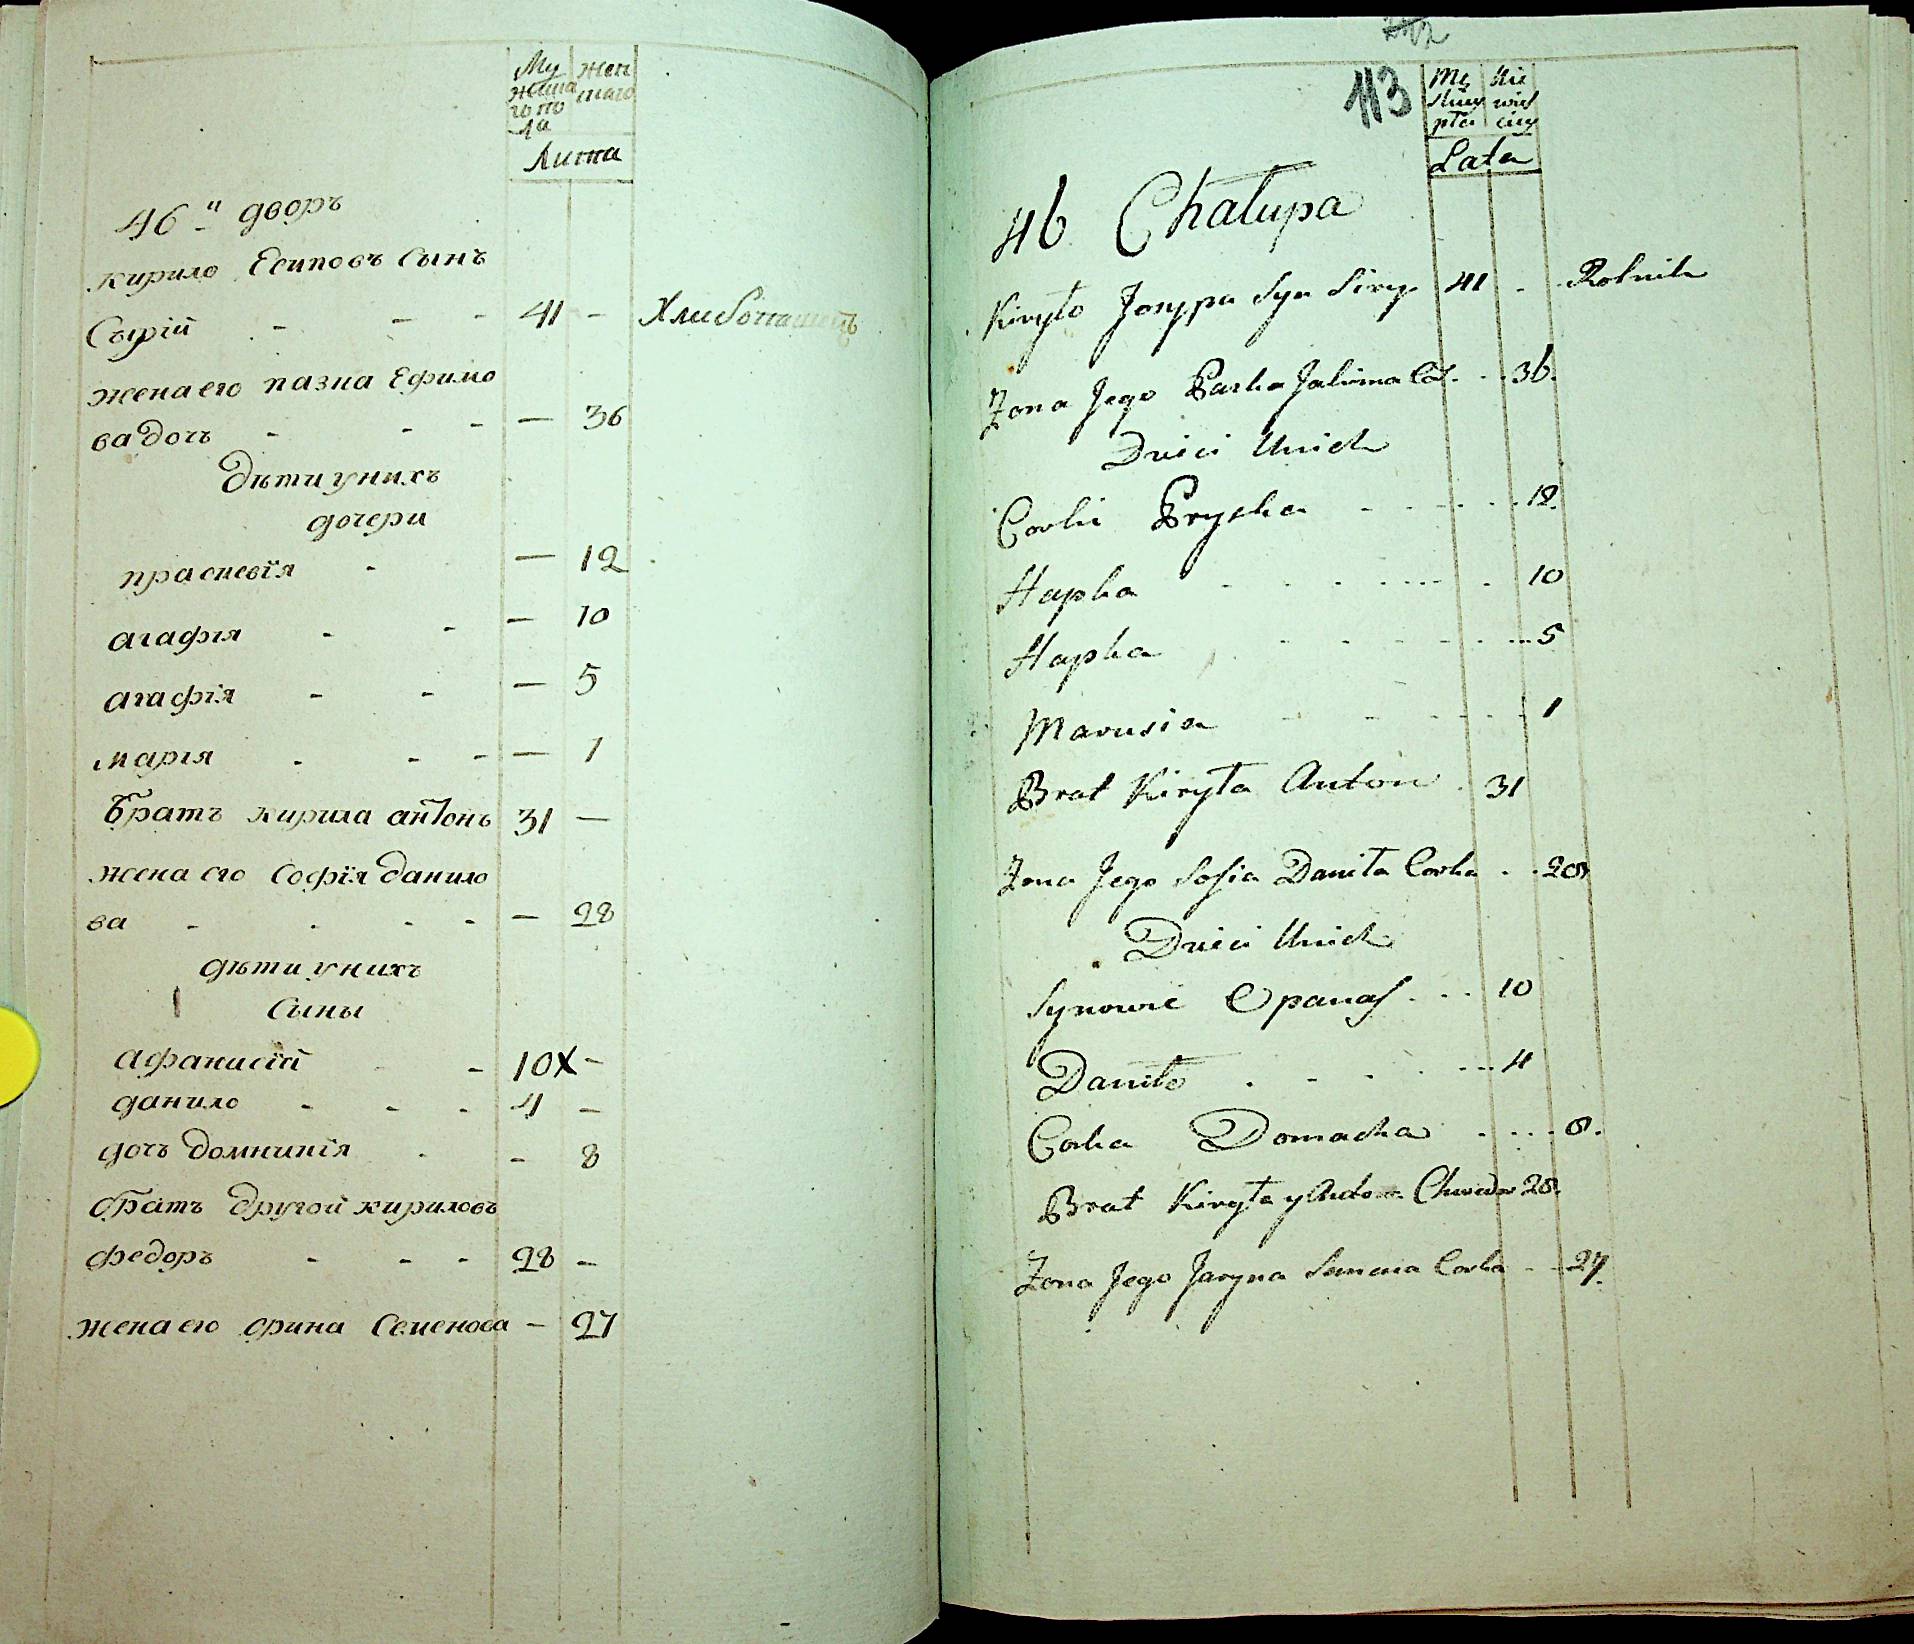 Му жен
жеска скаго
го по
ла
Лита
46й дворъ
кирило Есиповъ сынъ
Сѣрій - - - 41 - Хлибопашецъ
жена его пазна Ефимо
ва дочь - - - — 36
дѣти унихъ
дочери
прасковія - — 12
агафія - - — 10
агафія - - — 5
марія - - - — 1
братъ кирила антонъ 31 —
жена его софія данило
ва - - - - — 28
дѣти унихъ
сыны
афанисій - 10 x -
данило - - - 4 -
дочь домникія - - 8
братъ другой кириловъ
федоръ - - - 28 -
жена его орина Семенова - 27
113
Mę Nie
skiey wieś
płci ciey
Lata
46 Chałupa
Kiryło Josyppa Syn Siry 41 - Rolnik
Żona Jego Paska Jakima Cór. - - 36.
Dzieci Unich
Corki Pryska - - - - 12.
Hapka - - - - 10
Hapka - - - - 5
Marusia - - - - 1
Brat Kiryła Anton . 31
Żona Jego Sofia Daniła Corka . . 28
Dzieci Unich
Synowie Opanas . . . 10
Daniło . - - - 4
Corka Domacha . . . . 8.
Brat Kiryła y Antona Chwedor 28.
Żona Jego Jaryna Semena Corka - - 27.